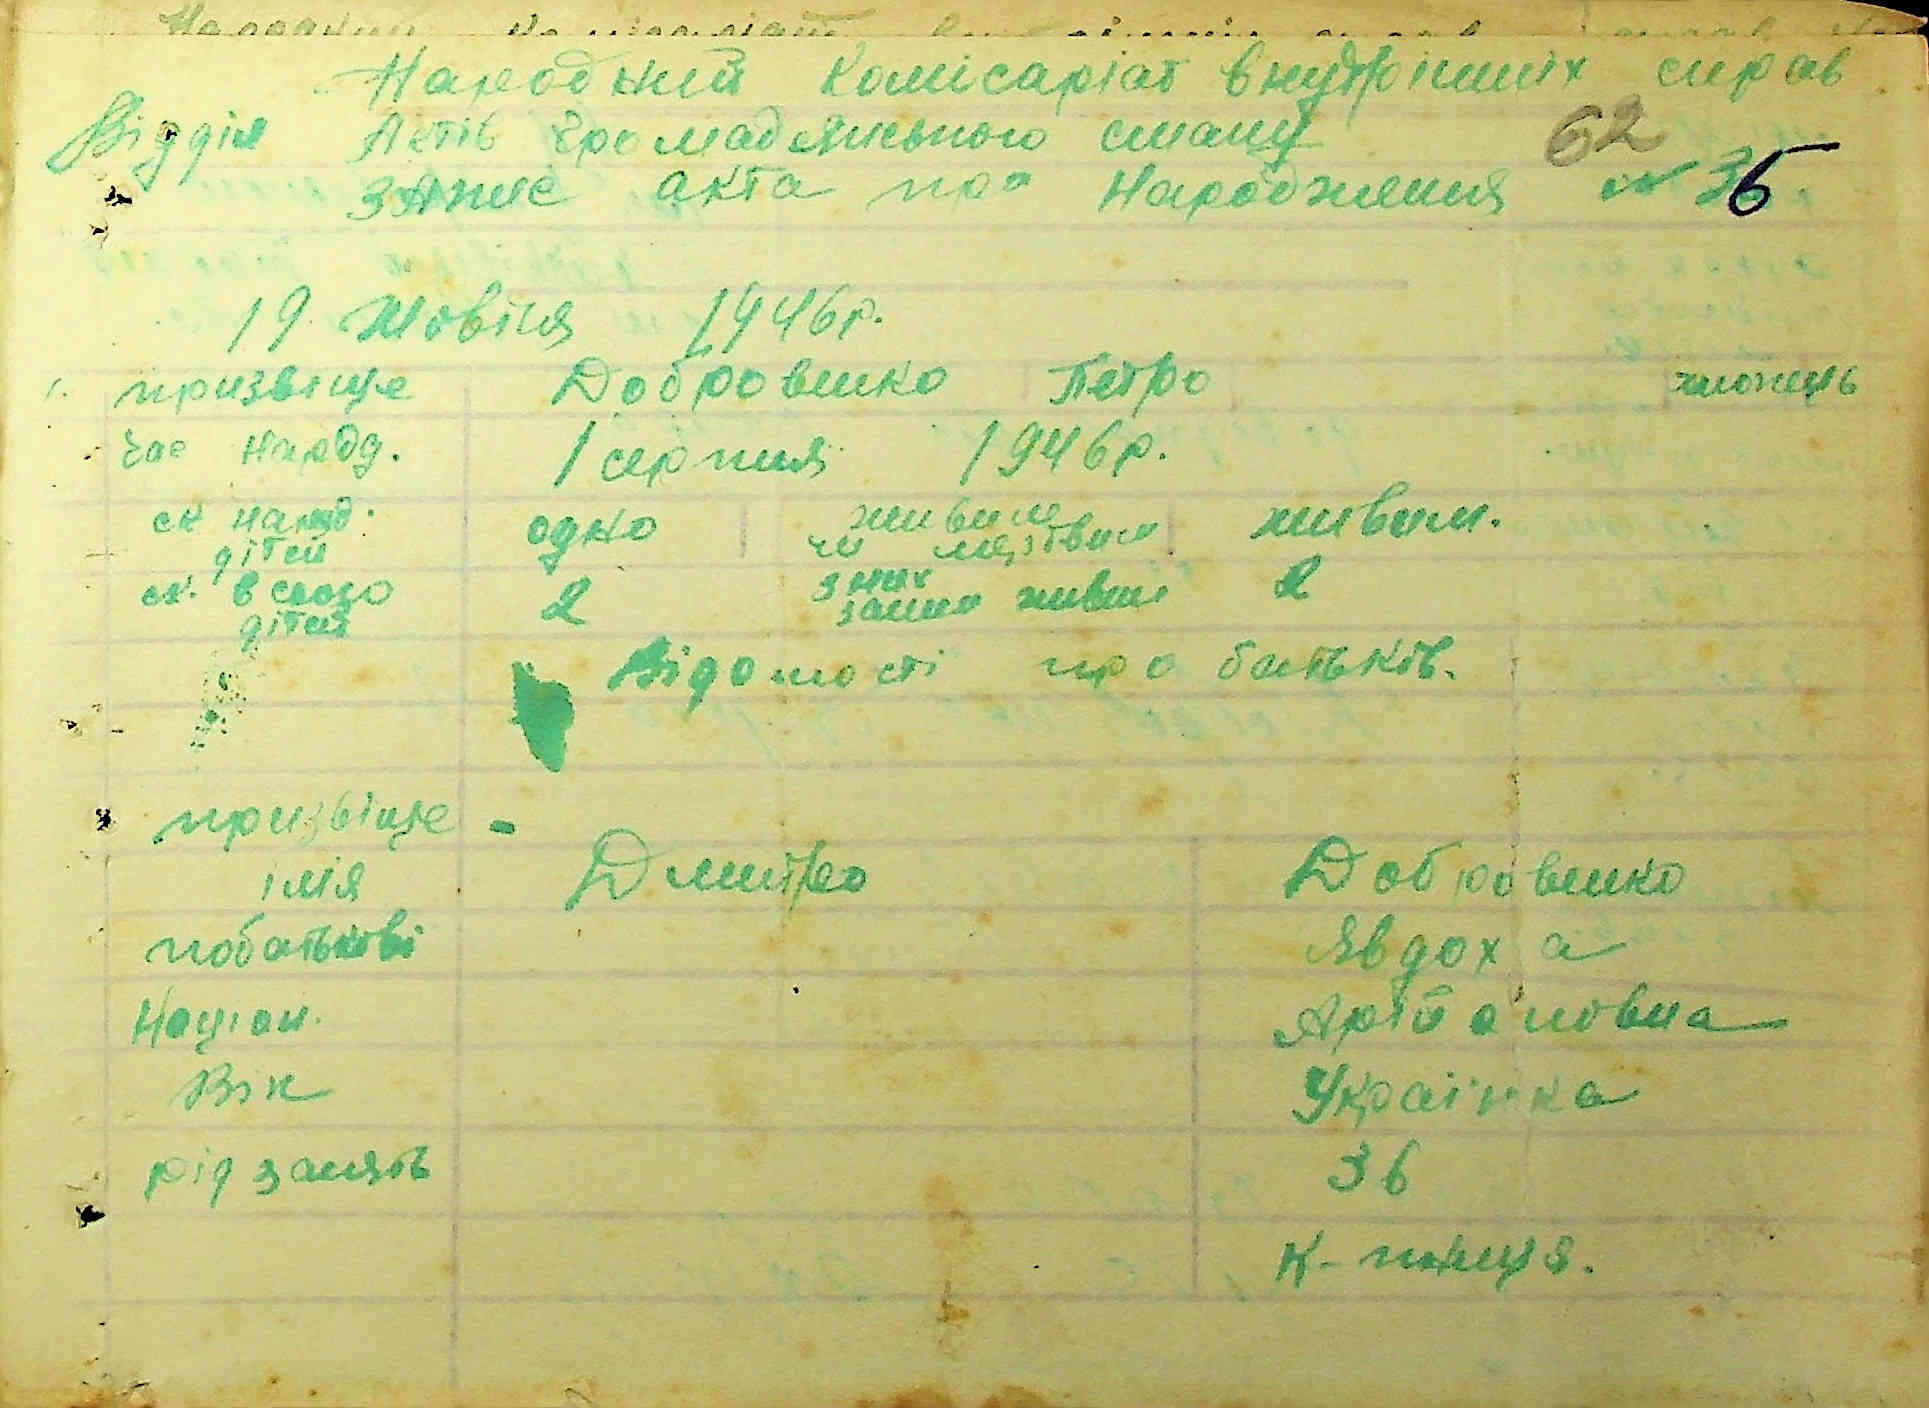 Народний Комісаріат внутрішніх справ
Відділ Актів Громадянського стану 62
Запис акта про народження № 36.
19 Жовтня 1946р.
1. призвіще Добровенко Петро хлопець
Час народ. 1 серпня 1946р.
ск народ. дітей одно живим чи мертвим живим.
ск. всього дітей 2 з них живих 2
Відомості про батьків.
призвіще -
імія Дмитро Добровенко
побатькові Явдоха
Націон.
Вік Українка
рід занять 36
К-ниця.